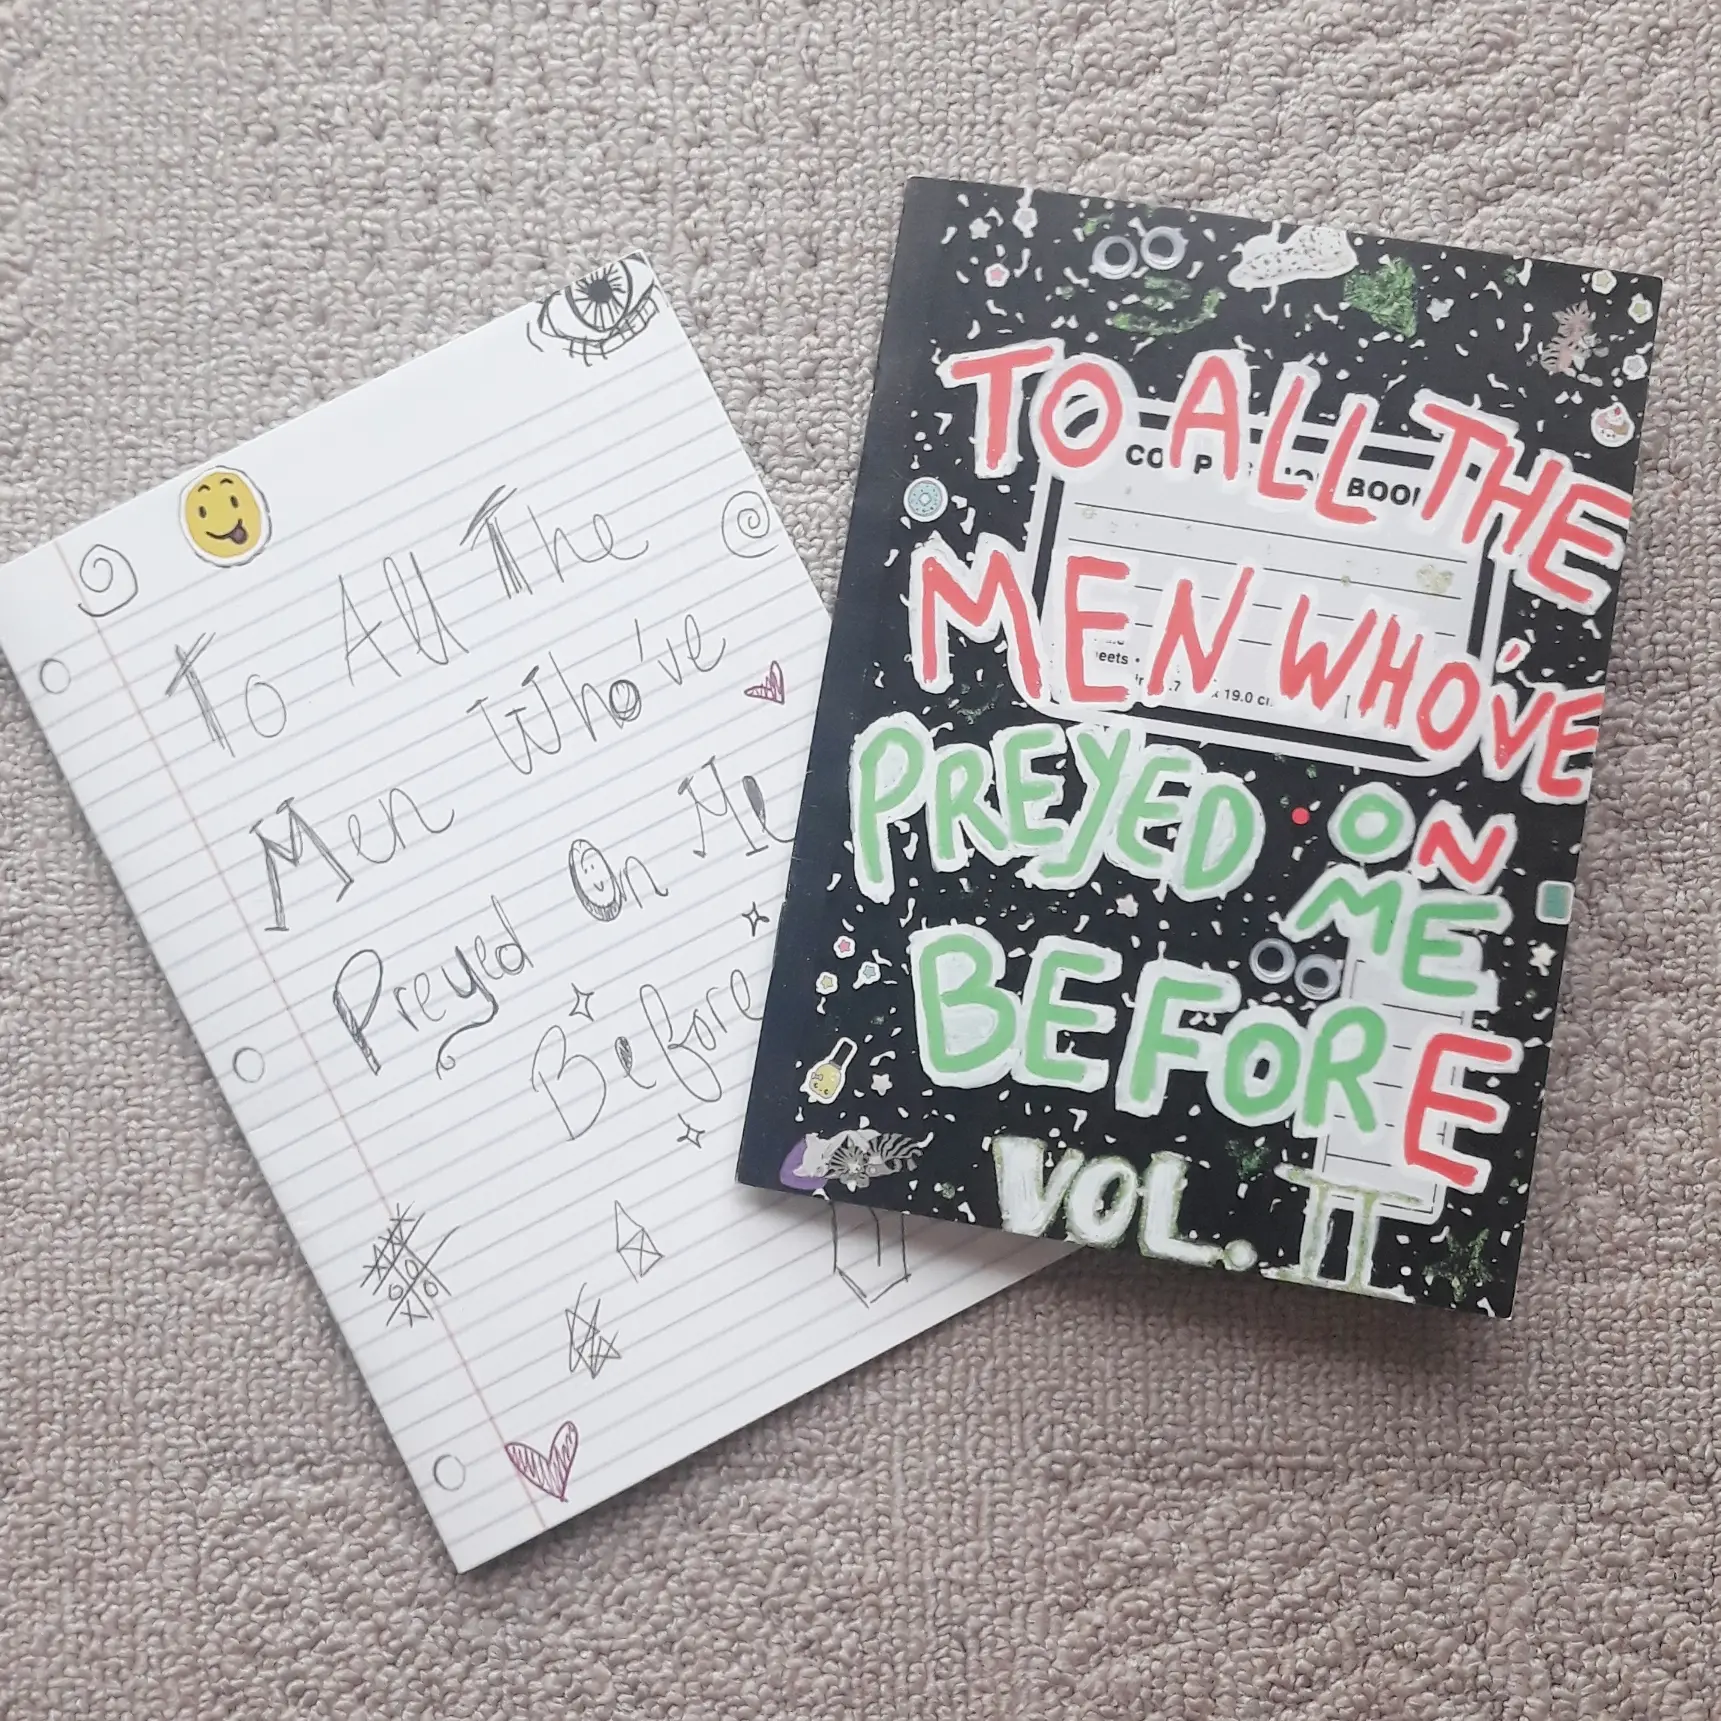 To All The
Men Who've
Preyed On Me
Before
TO ALL THE
MEN WHO'VE
PREYED ON
ME
BEFORE
VOL. II
BOO
eets •
19.0 c